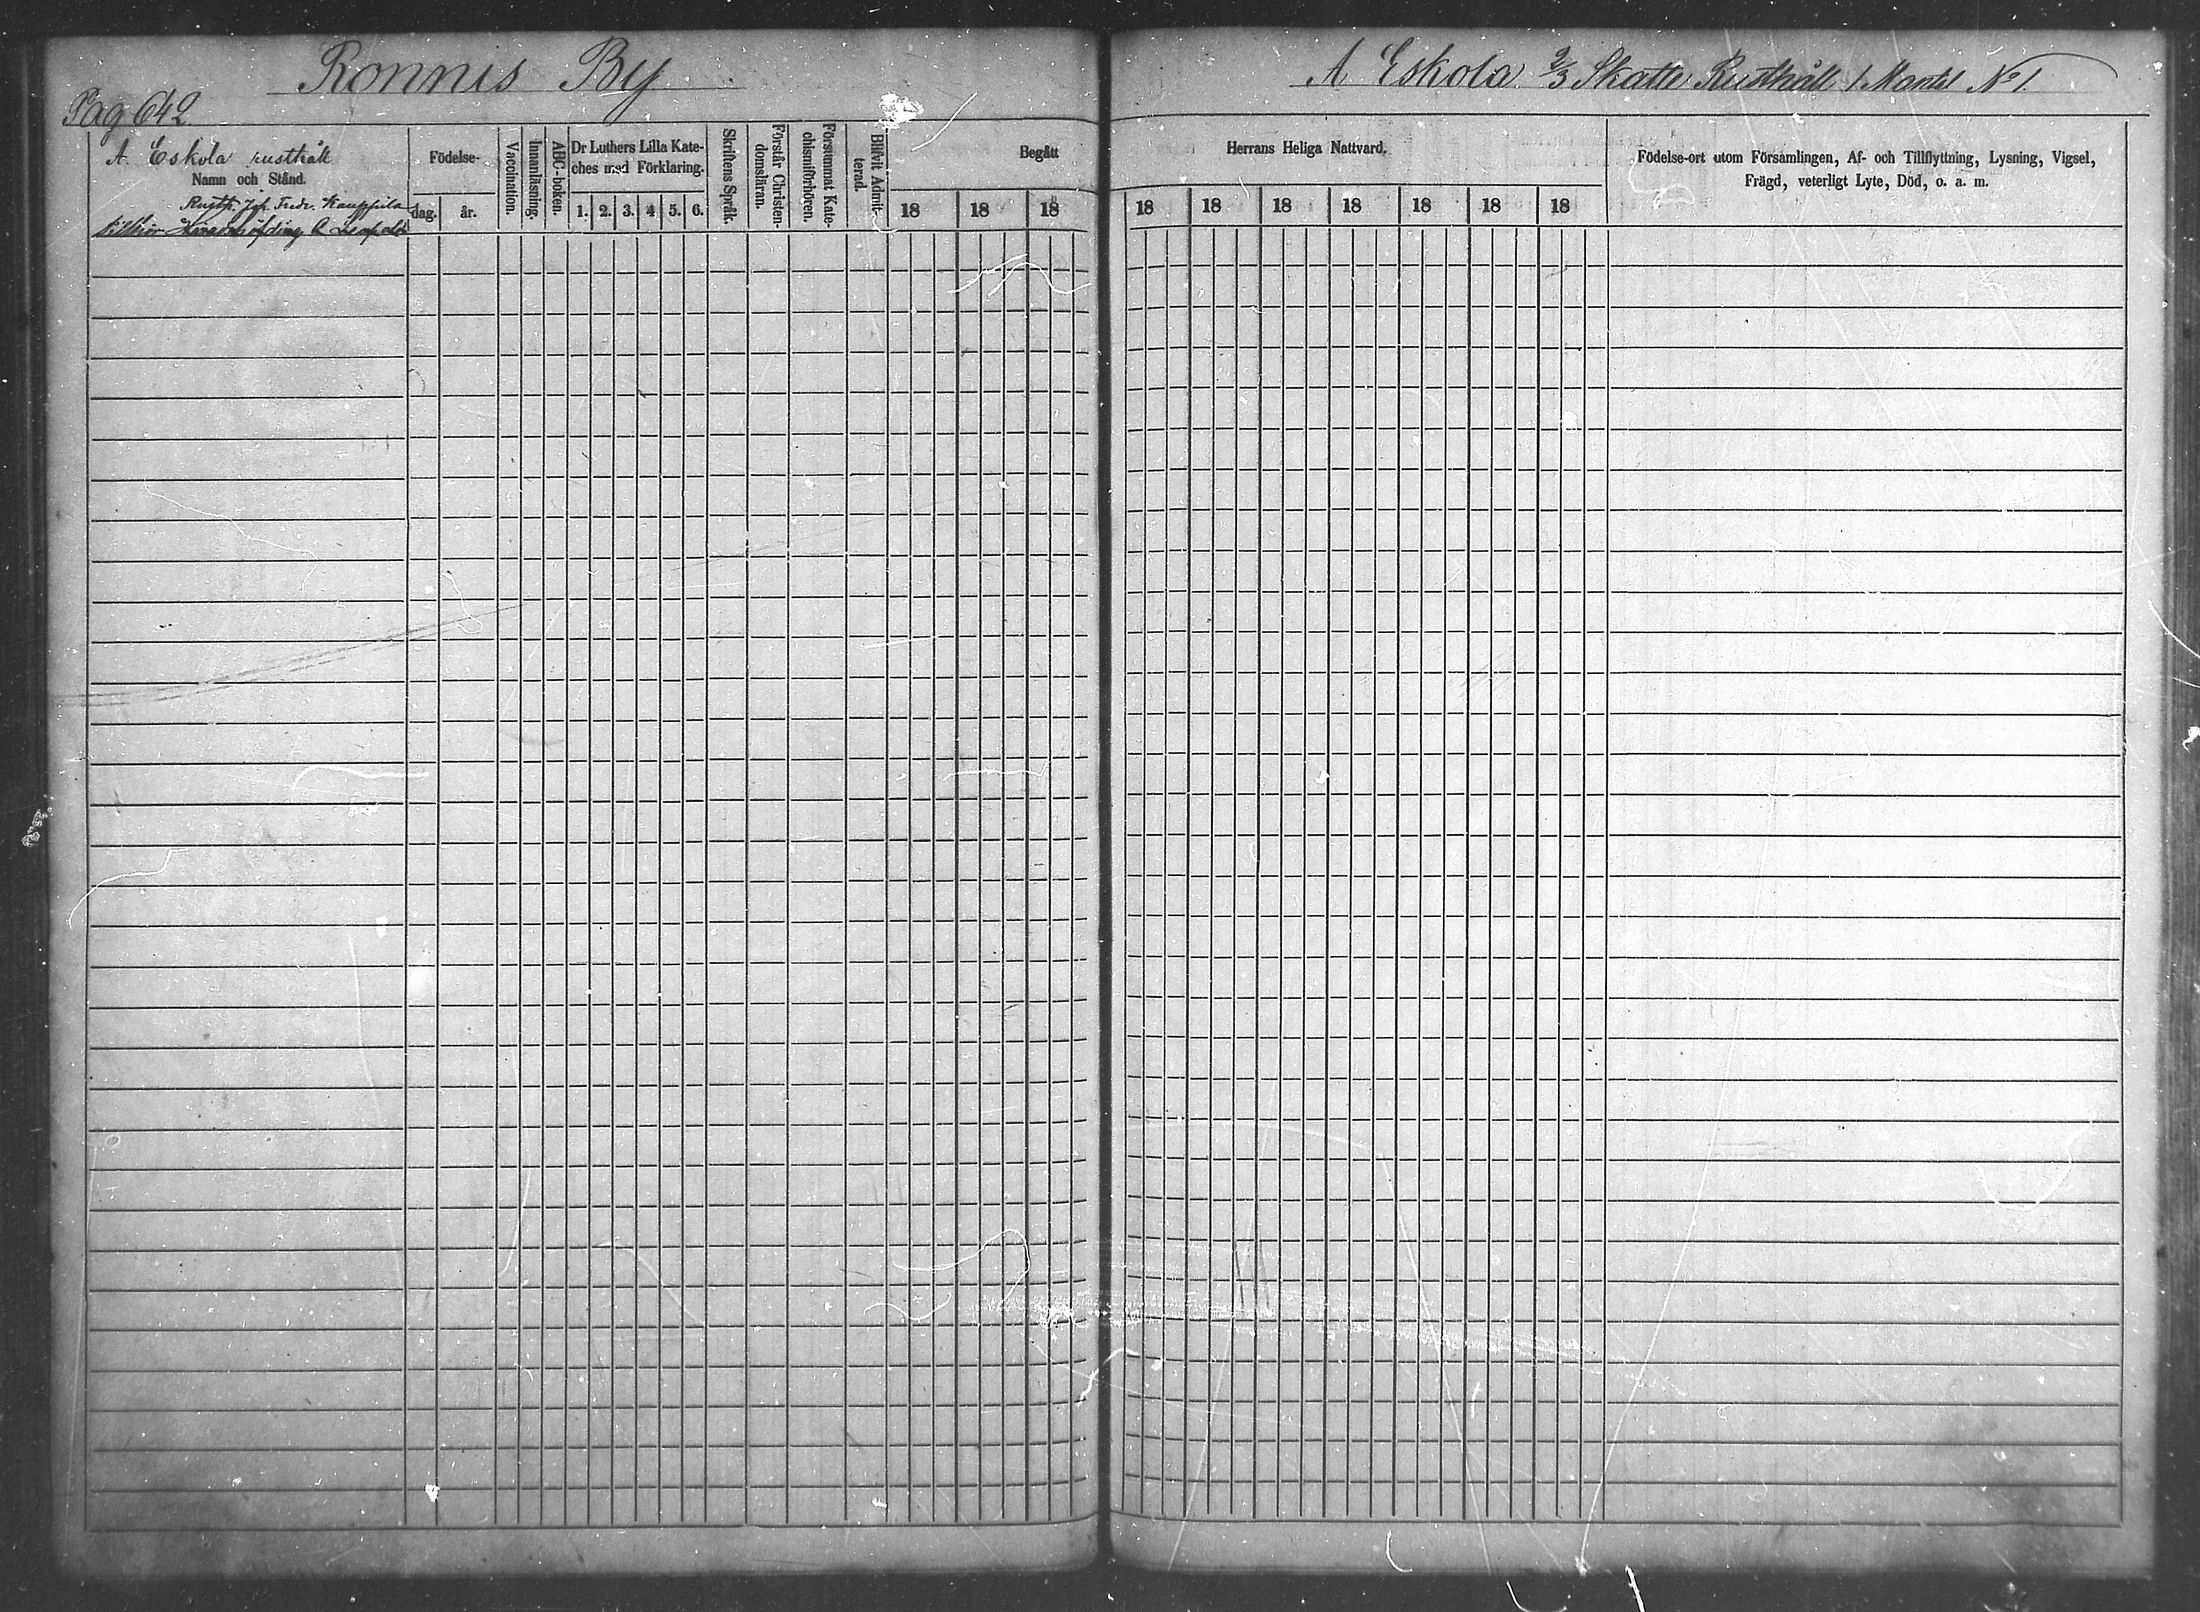 Ronnis By
Pag 642
A Eskola 2/3 Skatte Rusthåll 1 Mantal No 1
A. Eskola rusthåll
Namn och Stånd.
Rusth. Joh. Fredr. Kauppila
tillhör Häradshöfding
Födelse-
dag.
år.
Vaccination.
Innanläsning.
ABC-boken.
Dr Luthers Lilla Kate-
ches med Förklaring.
1. 2. 3. 4 5. 6.
Skriftens Språk.
Förstår Christen-
domsläran.
Försummat Kate-
chismiförhören.
Blifvit Admit-
terad.
Begått
18 18 18
Herrans Heliga Nattvard.
18 18 18 18 18 18 18
Födelse-ort utom Församlingen, Af- och Tillflyttning, Lysning, Vigsel,
Frägd, veterligt Lyte, Död, o. a. m.